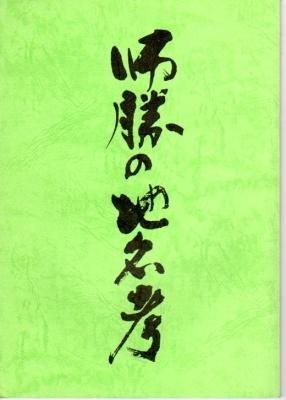 師勝の地名考